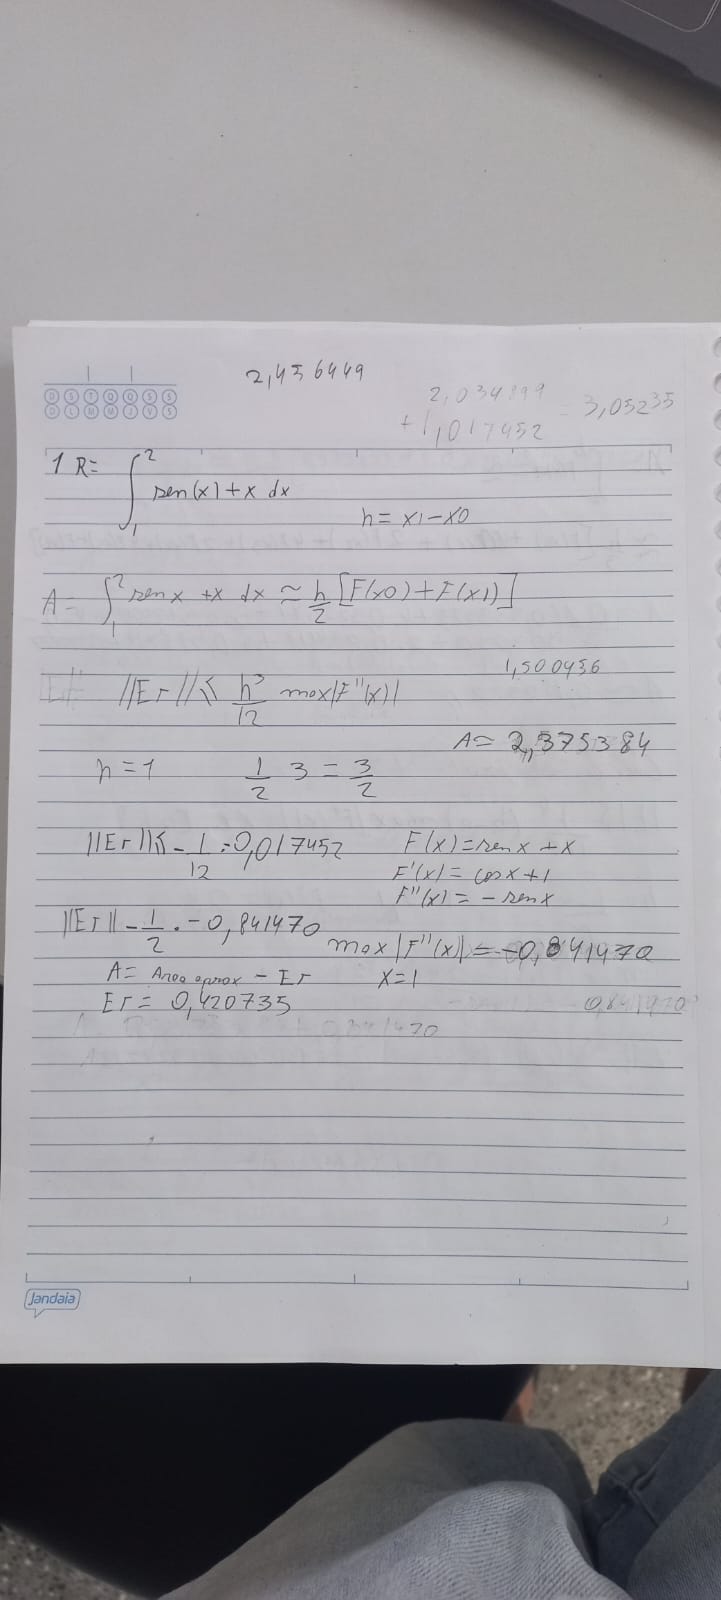 2,456449
2,034899
+1,017452 = 3,05235
D S T Q Q S S
D L M M J V S
1 R= ∫₁² sen(x)+x dx
h= x1-x0
A= ∫₁² sen x +x dx ≈ h/2 [F(x0)+F(x1)]
1,500456
||Er||≤ h³/12 max|F''(x)|
A= 2,375384
h=1 1/2 3 = 3/2
||Er||≤ -1/12 .-0,017452 F(x)=sen x +x
F'(x)= cos x+1
F''(x)= -sen x
||Er|| -1/2 .-0,841470
max|F''(x)|=-0,841470
A= Area aprox - Er x=1
Er= 0,420735 0,841470
Jandaia